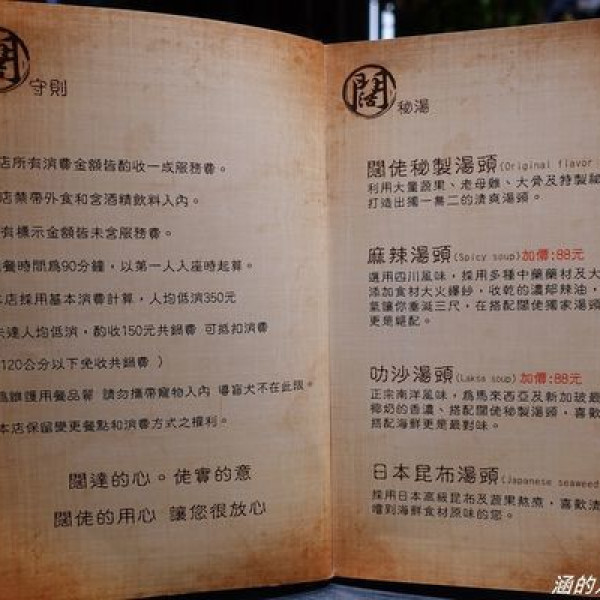 闊
守則
店所有消費金額皆酌收一成服務費。
店禁帶外食和含酒精飲料入內。
有標示金額皆未含服務費。
餐時間為90分鐘，以第一人入座時起算。
本店採用基本消費計算，人均低消350元
未達人均低消，酌收150元共鍋費 可抵扣消費
120公分以下免收共鍋費 ）
為維護用餐品質 請勿攜帶寵物入內 導盲犬不在此限。
本店保留變更餐點和消費方式之權利。
闊達的心。佬實的意
闊佬的用心 讓您很放心
闊
秘湯
闊佬秘製湯頭(Original flavor
利用大量蔬果、老母雞、大骨及特製
打造出獨一無二的清爽湯頭。
麻辣湯頭(Spicy soup)加價:88元
選用四川風味，採用多種中藥藥材及大
添加食材大火爆鈔，收乾的濃郁辣油，
氣讓你垂涎三尺，在搭配闊佬獨家湯頭
更是絕配。
叻沙湯頭(Laksa soup)加價:88元
正宗南洋風味，為馬來西亞及新加坡最
椰奶的香濃、搭配闊佬秘製湯頭，喜歡
搭配海鮮更是最對味。
日本昆布湯頭(Japanese seaweed
採用日本高級昆布及蔬果熬煮，喜歡清
嚐到海鮮食材原味的您。
涵的